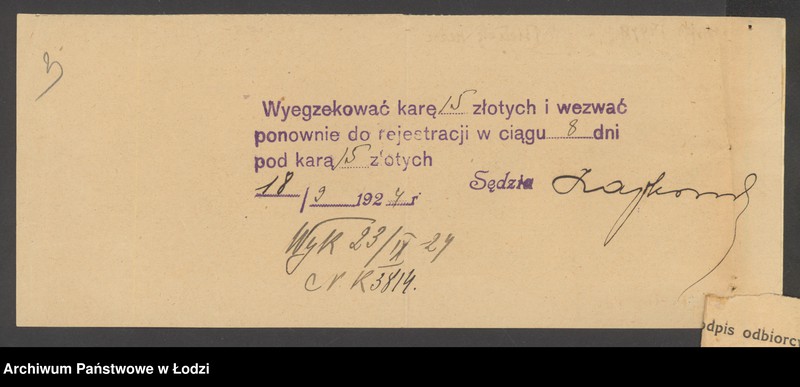 3
Wyegzekować karę 15 złotych i wezwać
ponownie do rejestracji w ciągu 8 dni
pod karą 15 złotych
18/9 1924 r
Sędzia
Wyk 23/IX 24
N. K 3814.
odpis odbiorcy
Archiwum Państwowe w Łodzi